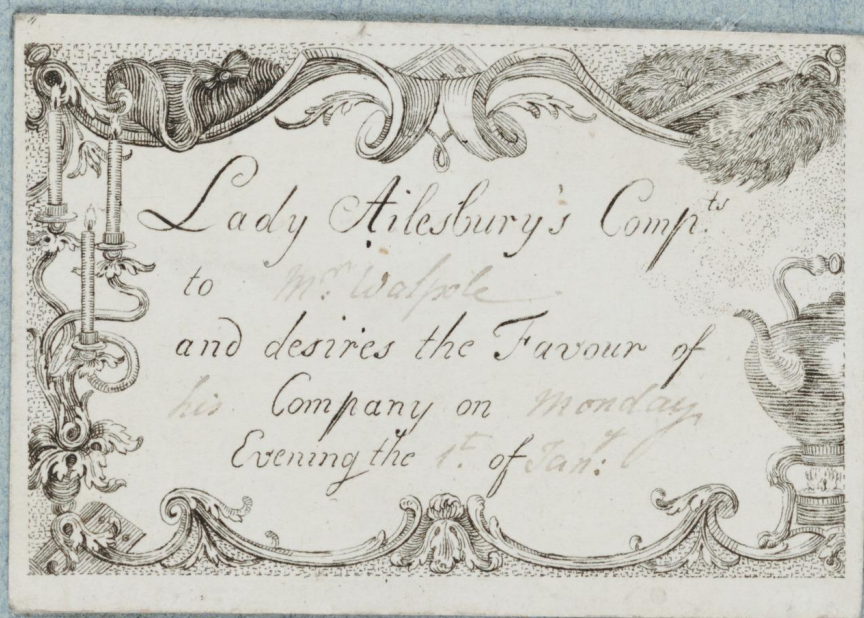 Lady Ailesbury's Comp.ts
to Mr. Walpole
and desires the Favour of
his Company on Monday
Evening the 1st. of Jany: